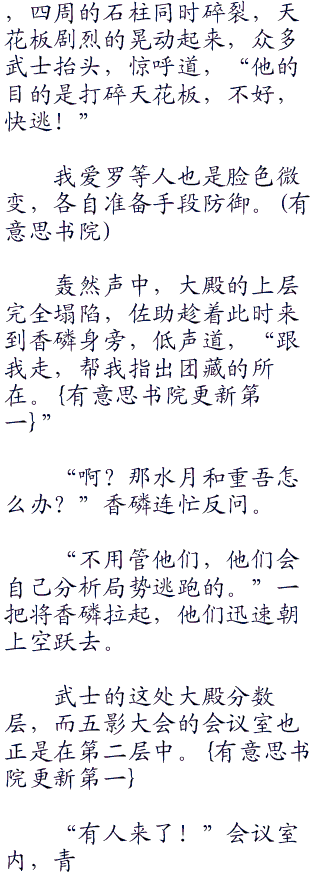 ，四周的石柱同时碎裂，天
花板剧烈的晃动起来，众多
武士抬头，惊呼道，“他的
目的是打碎天花板，不好，
快逃！”
我爱罗等人也是脸色微
变，各自准备手段防御。(有
意思书院)
轰然声中，大殿的上层
完全塌陷，佐助趁着此时来
到香磷身旁，低声道，“跟
我走，帮我指出团藏的所
在。{有意思书院更新第
一}”
“啊？那水月和重吾怎
么办？”香磷连忙反问。
“不用管他们，他们会
自己分析局势逃跑的。”一
把将香磷拉起，他们迅速朝
上空跃去。
武士的这处大殿分数
层，而五影大会的会议室也
正是在第二层中。{有意思书
院更新第一}
“有人来了！”会议室
内，青